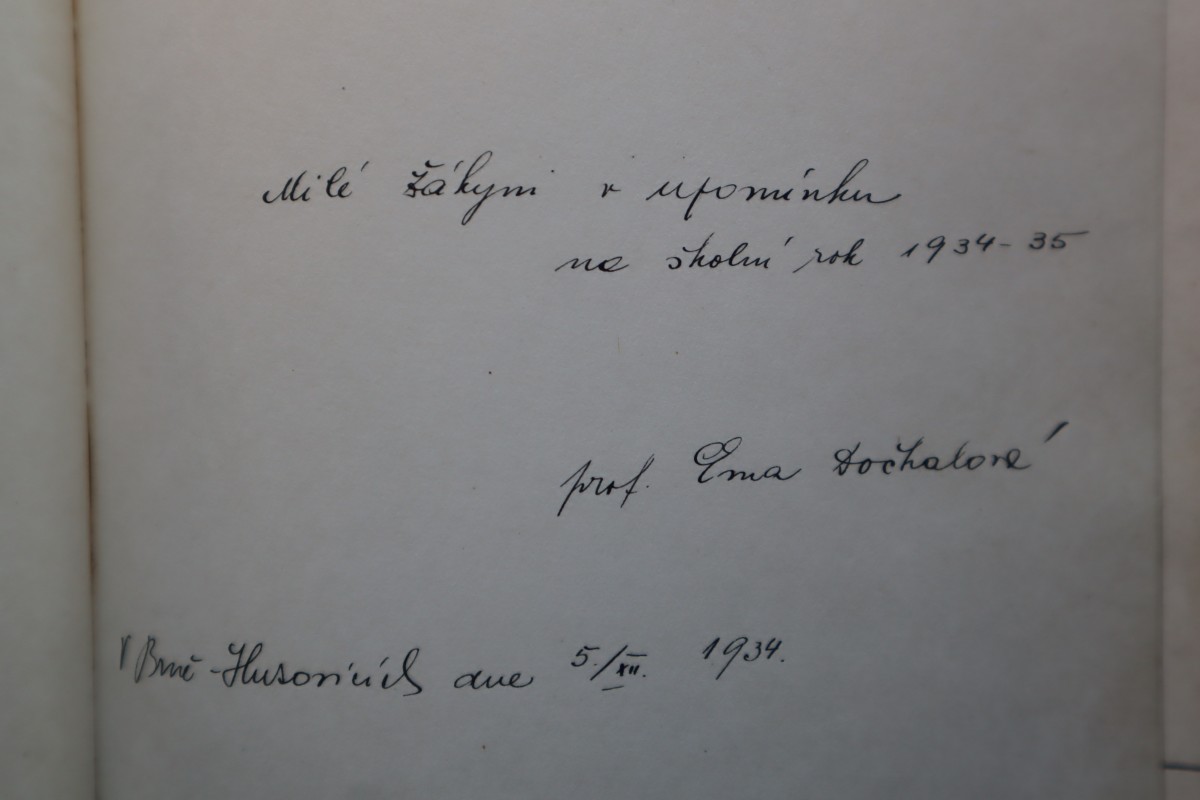 Milé žákyni v upomínku
na školní rok 1934-35
prof. Ema Dočkalová
V Brně-Husovicích dne 5./XII. 1934.